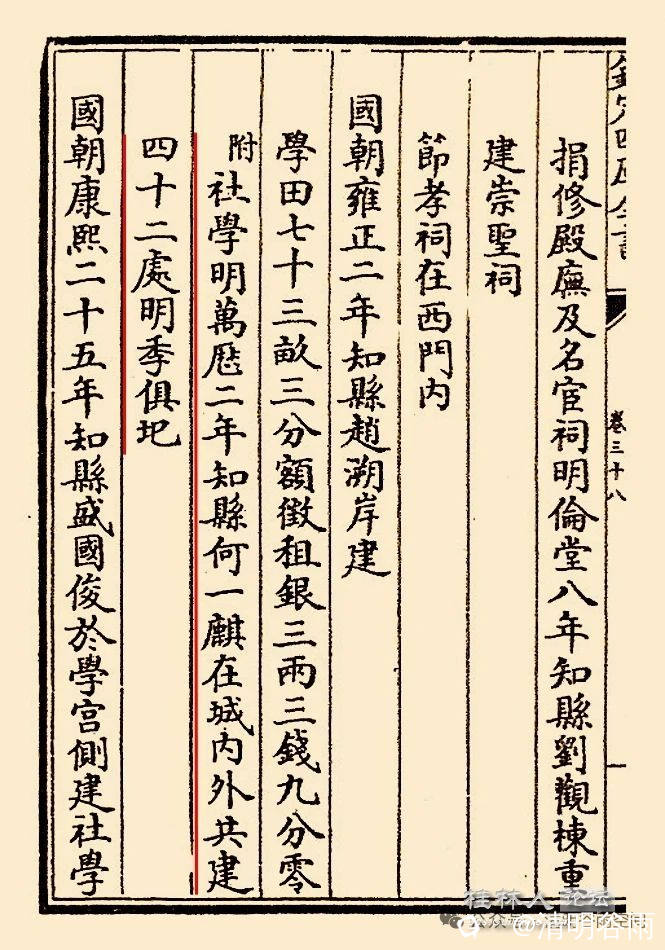 欽定四庫全書
卷三十八
捐修殿廡及名宦祠明倫堂八年知縣劉觀棟重
建崇聖祠
節孝祠在西門内
國朝雍正二年知縣趙溯岸建
學田七十三畝三分額徴租銀三兩三錢九分零
附社學明萬厯二年知縣何一麒在城内外共建
四十二處明季俱圮
國朝康熙二十五年知縣盛國俊於學宫側建社學
桂林人论坛
@清明谷雨